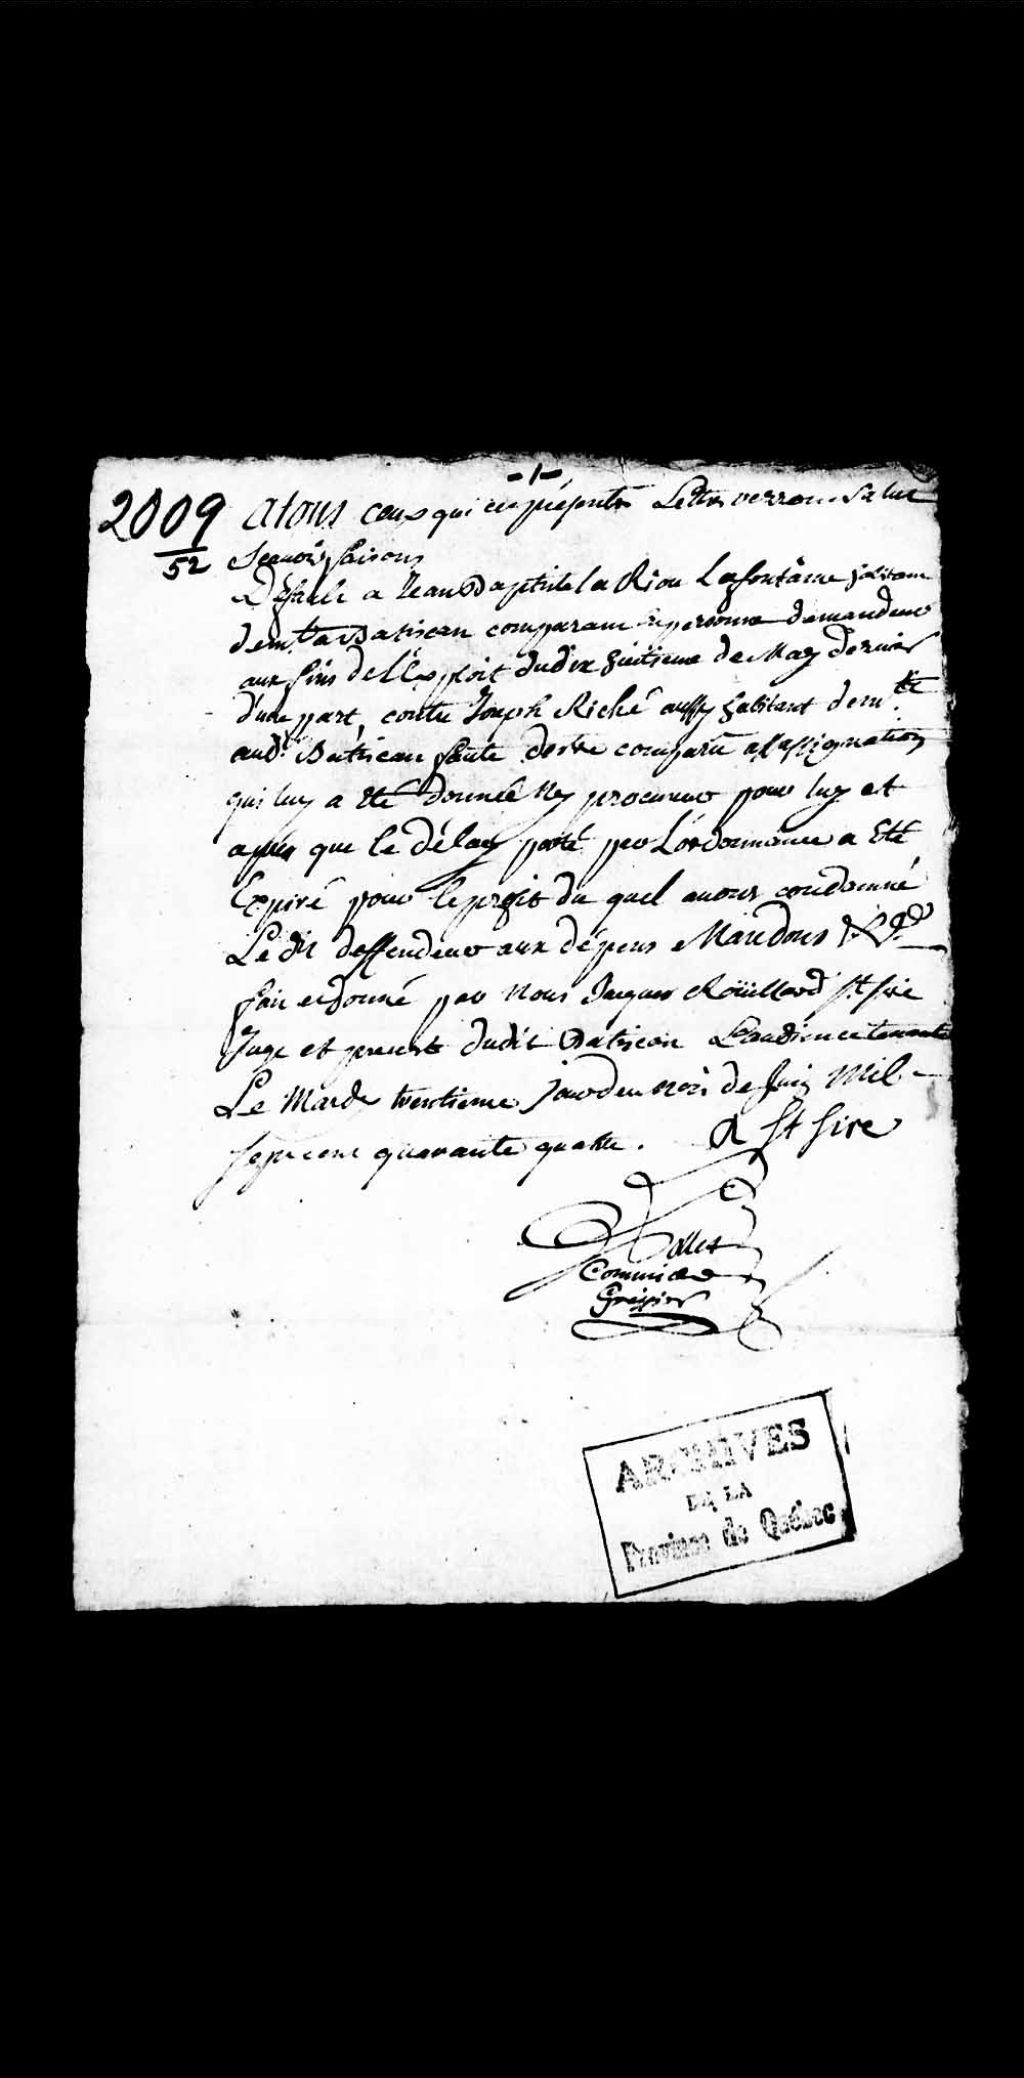 -1-
2009
52
Atous ceux qui ces présentes Lettres verront Salut
Scavoir faisons
Défault a Jean Baptiste la Riou Lafontaine habitant
dem.te a Batiscan comparant en personne demandeur
aux fins de l'Exploit du dix huitieme de May dernier
d'une part, contre Joseph Riché aussy habitant dem.te
aud.t Batiscan faute destre comparu a l'assignation
qui luy a été donnée Ny procureur pour luy et
après que le délay porté par L'ordonnance a été
Expiré pour le profit du quel avons condamné
Le dit deffendeur aux dépens Mandons &c.
fait et donné par Nous Jacques Roüillard St sire
Juge et prevost dudit Batiscan L'audience tenante
Le Mardy trentieme jour du mois de Juin Mil
Sept cent quarante quatre. R St Sire
Pollet
Commis de
Greffier
ARCHIVES
DE LA
Province de Québec